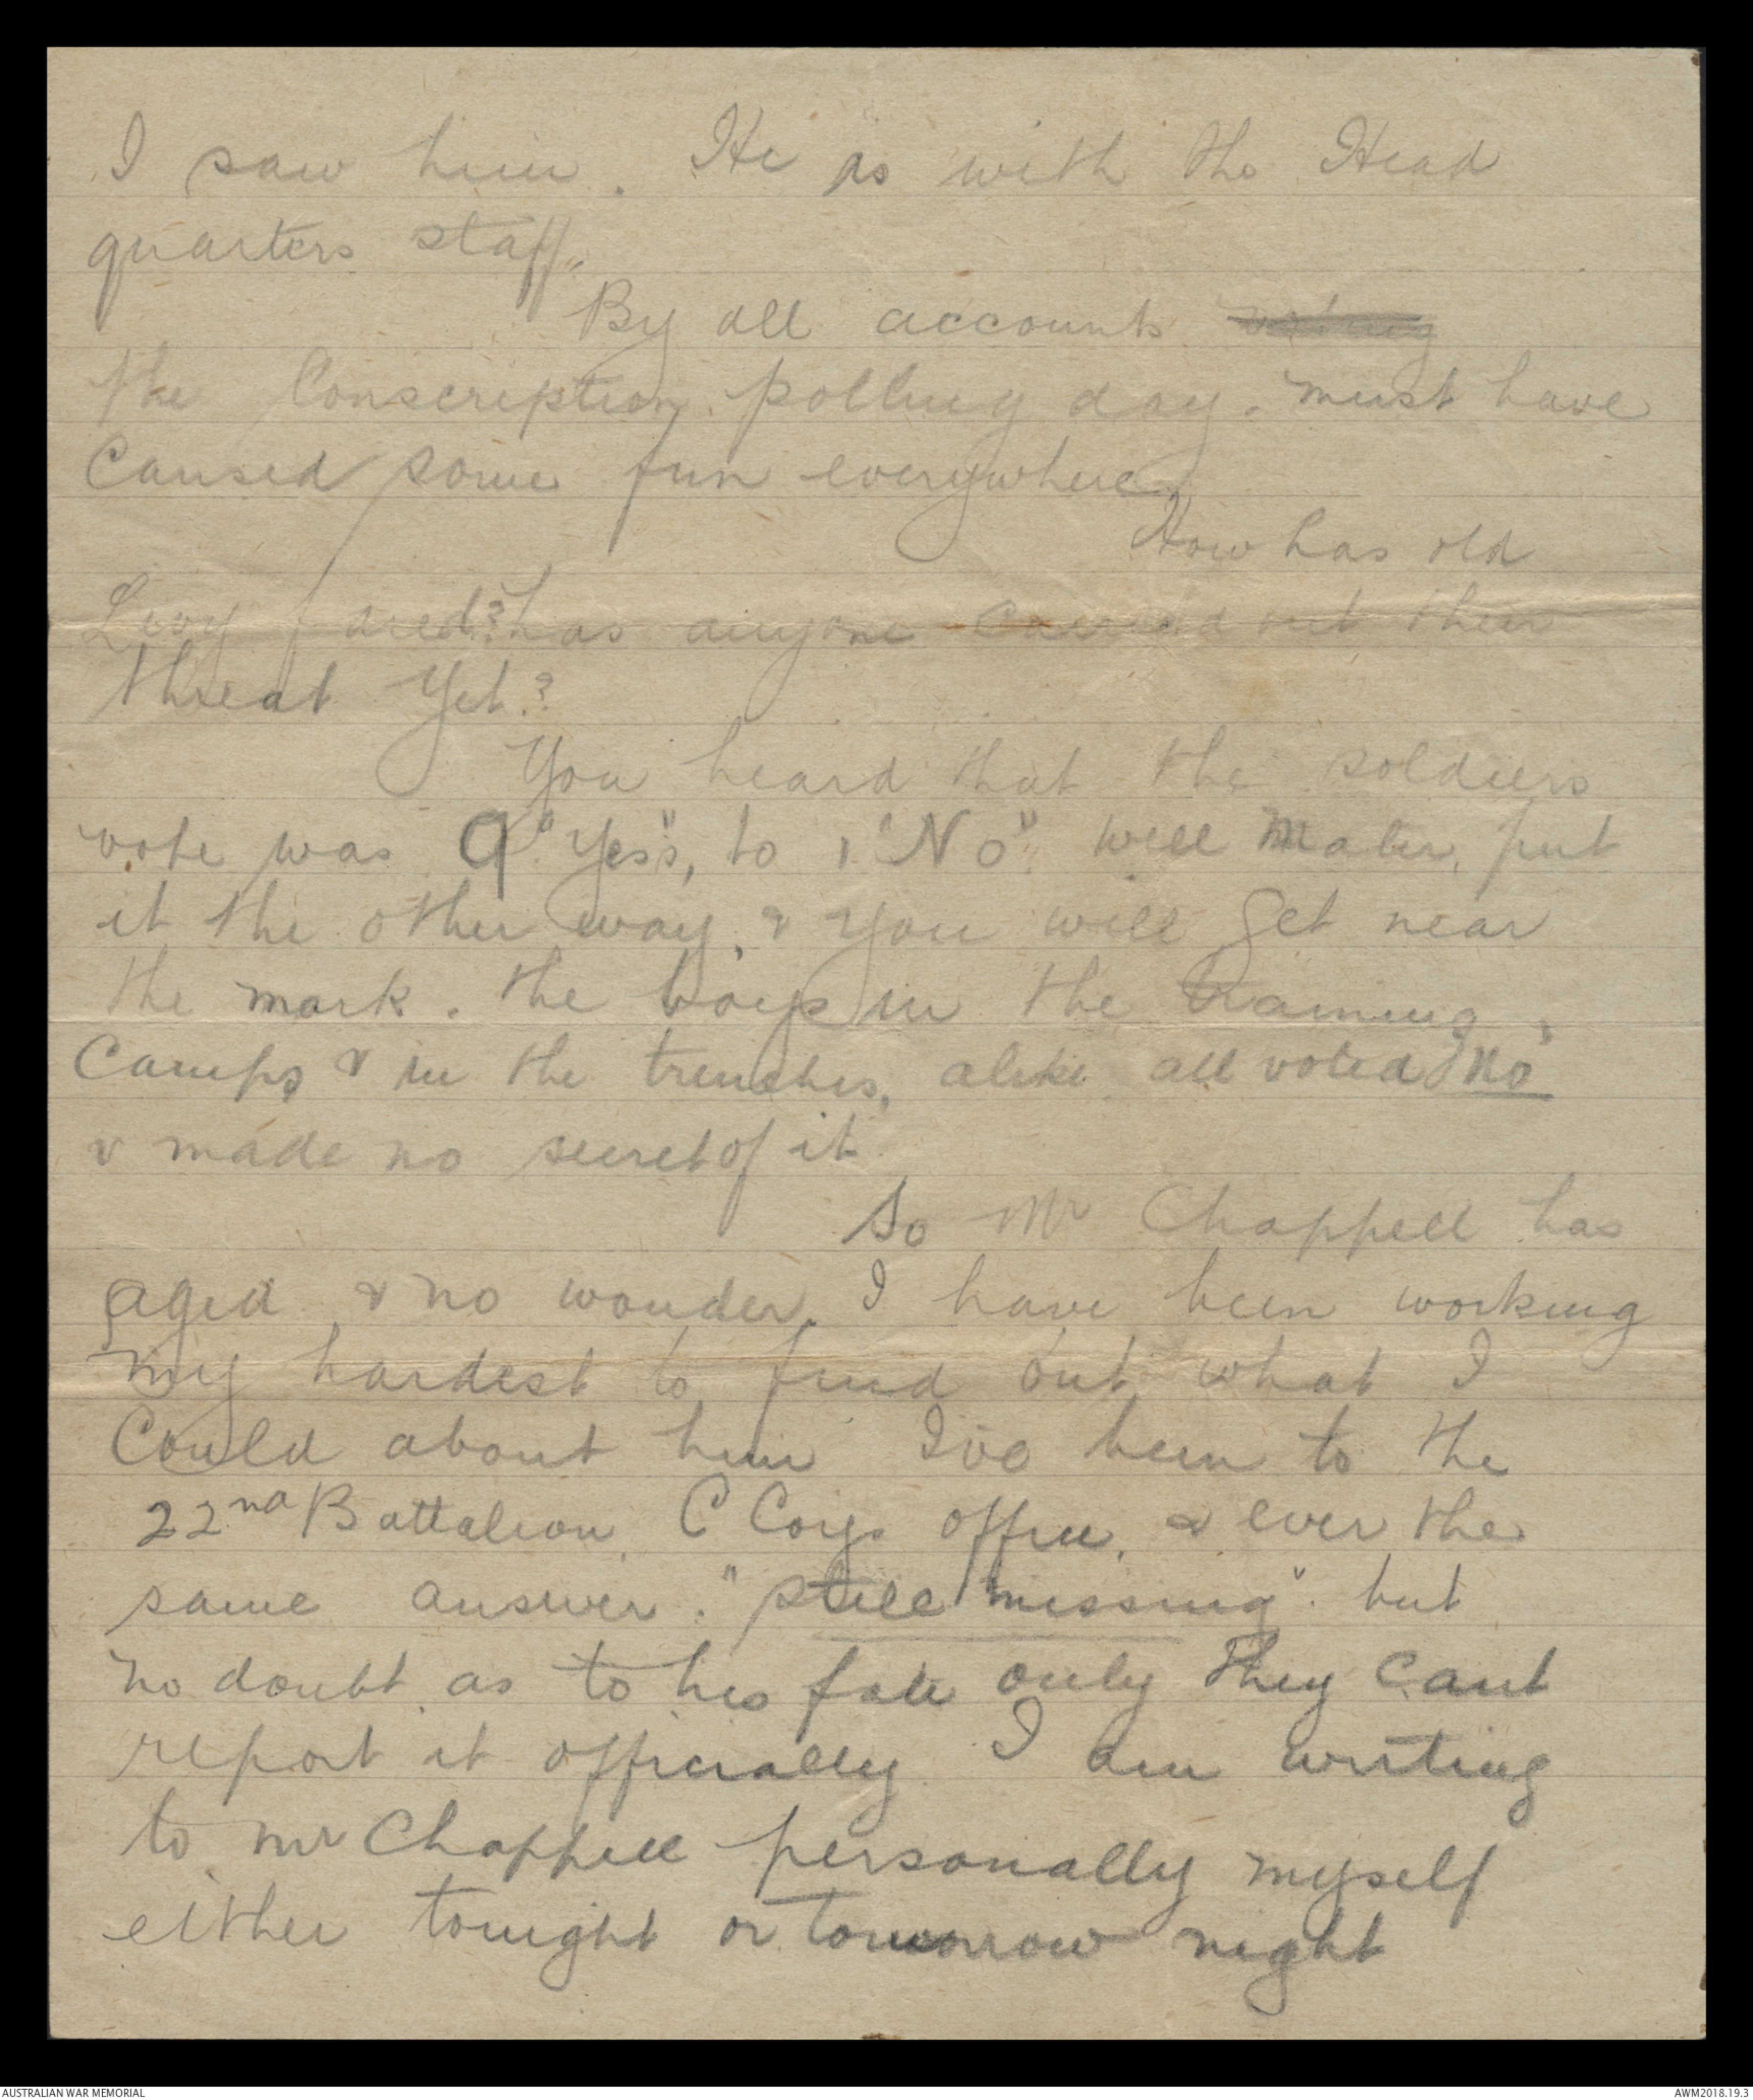 I saw him. He is with the Head
quarters staff.
By all accounts
the Conscription polling day. must have
Caused some fun everywhere
How has old
Levy fared? has anyone Carried out their
threat Yet?
You heard that the soldiers
vote was 9 "Yes's", to 1 "No" well Mater, put
it the other way, & you will get near
the mark. the boys in the training
Camps & in the trenches, alike all voted "No"
& made no secret of it.
So Mr Chappell has
aged & no wonder. I have been working
my hardest to find out what I
Could about him I've been to the
22nd Battalion, C Coys office, & ever the
same answer. "still missing". but
no doubt as to his fate only they cant
report it officially. I am writing
to Mr Chappell personally myself
either tonight or tomorrow night
AUSTRALIAN WAR MEMORIAL
AWM2018.19.3